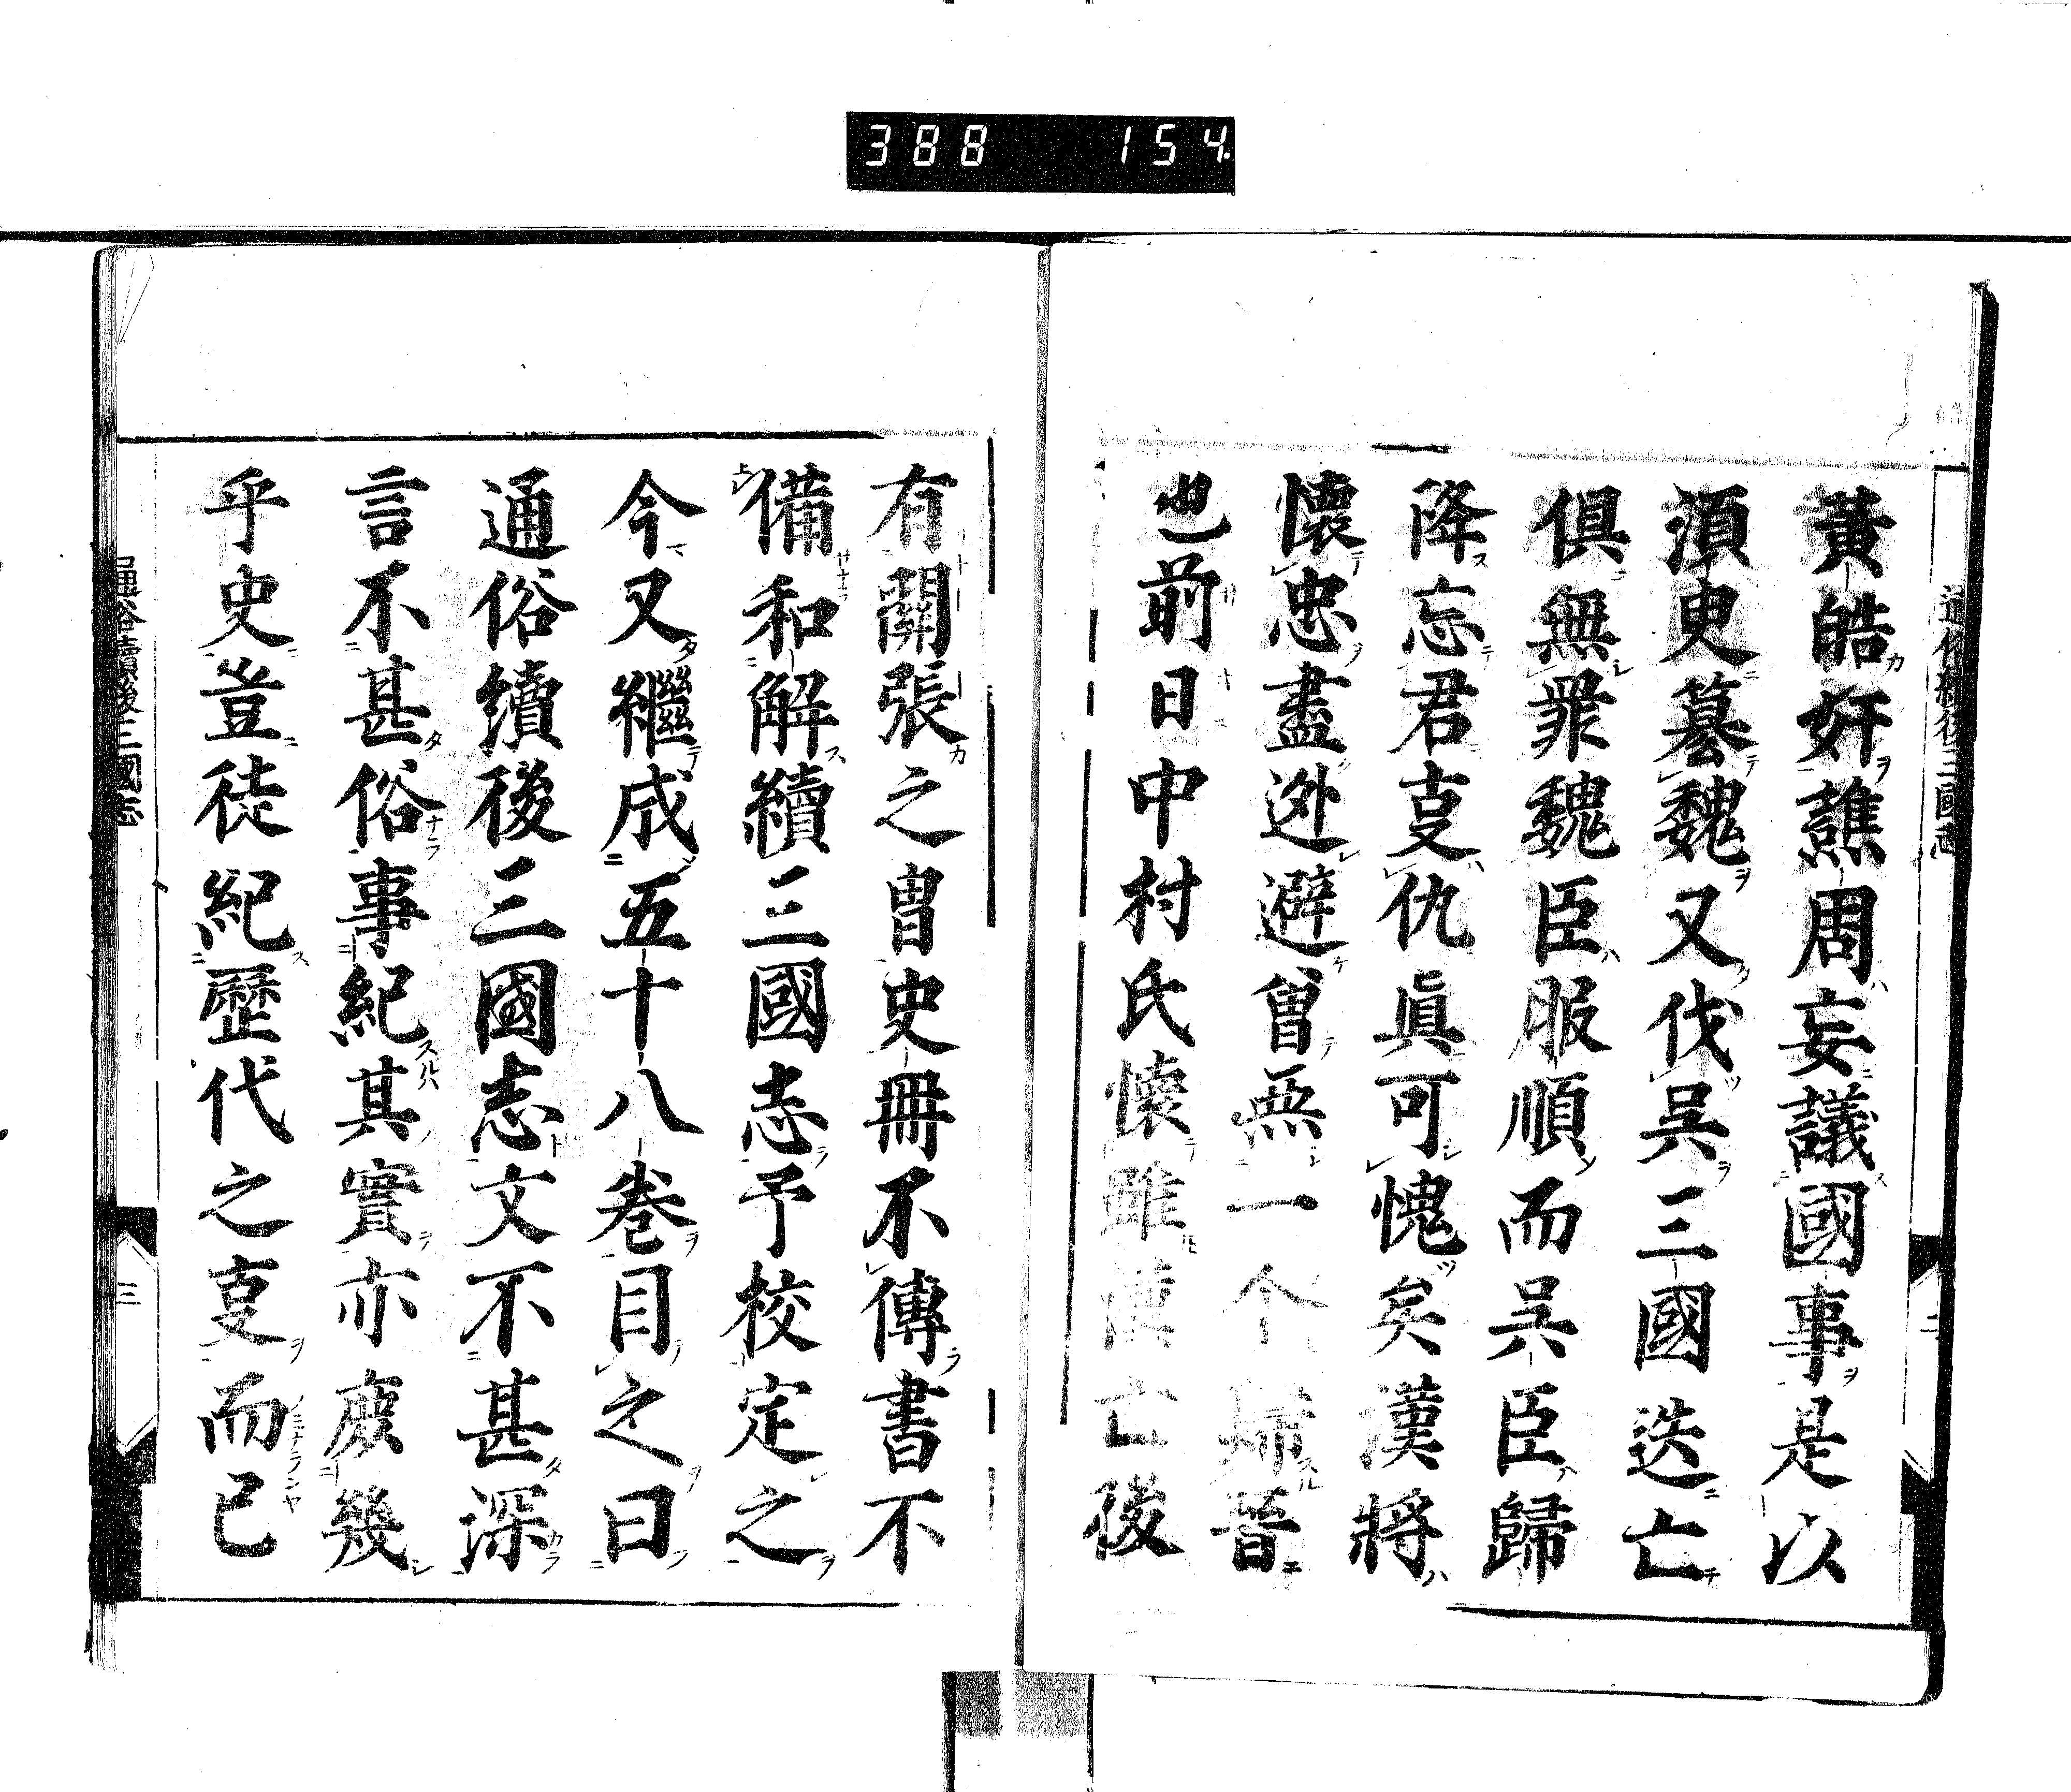 388 154
黃皓奸譙周妄議國事是以
須臾簒魏又伐吳三國迭亡
俱無罪魏臣服順而吳臣歸
降忘君叓仇眞可愧矣漢將
懷忠盡迯避曾無一个歸晉
也前日中村氏懷雖漢亡後
有關張之曽史冊不傳書不
備和解續三國志予校定之
今又繼成五十八卷目之曰
通俗續後三國志文不甚深
言不甚俗事紀其實亦庶幾
乎史豈徒紀歷代之叓而已
通俗續後三國志
三